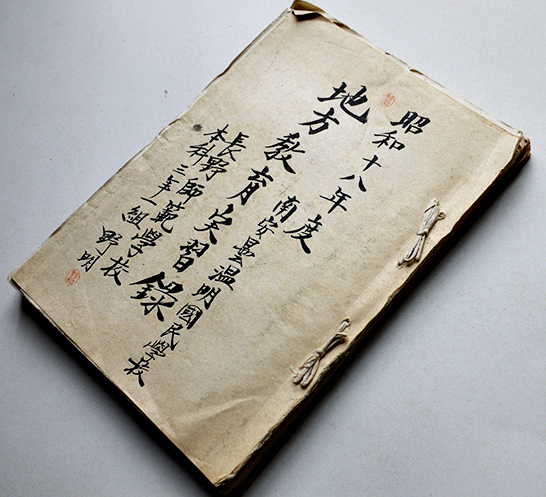 昭和十八年度
地方教育実習錄
南安曇温明國民學校
長野師範學校
本科三年一組 野明